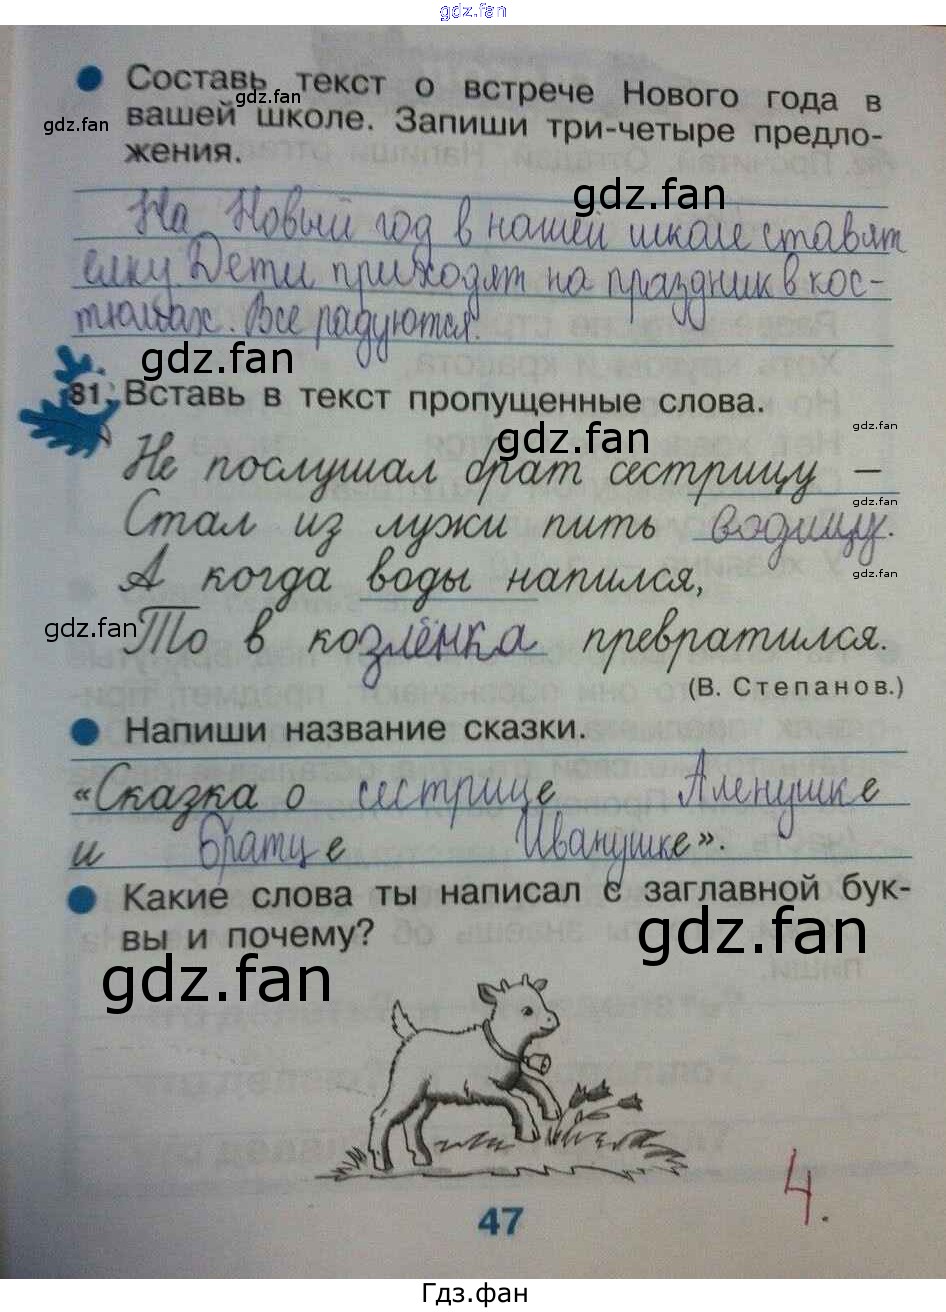 gdz.fan
Составь текст о встрече Нового года в
gdz.fan
gdz.fan
вашей школе. Запиши три-четыре предло-
жения.
gdz.fan
На Новый год в нашей школе ставят
ёлку Дети приходят на праздник в кос-
тюмах. Все радуются.
gdz.fan
81. Вставь в текст пропущенные слова.
gdz.fan
gdz.fan
Не послушал брат сестрицу –
gdz.fan
Стал из лужи пить водицу.
А когда воды напился,
gdz.fan
gdz.fan
То в козлёнка превратился.
(В. Степанов.)
Напиши название сказки.
«Сказка о сестрице Аленушке
и братце Иванушке».
Какие слова ты написал с заглавной бук-
вы и почему?
gdz.fan
gdz.fan
47
4.
Гдз.фан